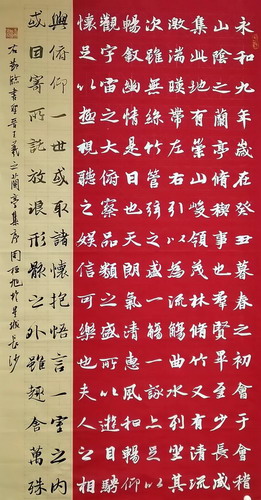 永和九年歲在癸丑暮春之初會于會稽
山陰之蘭亭脩禊事也群賢畢至少長咸
集此地有崇山峻領茂林脩竹又有清流
激湍暎帶左右引以為流觴曲水列坐其
次雖無絲竹管弦之盛一觴一詠亦足以
暢敘幽情是日也天朗氣清惠風和暢仰
觀宇宙之大俯察品類之盛所以遊目騁
懷足以極視聽之娛信可樂也夫人之相
與俯仰一世或取諸懷抱悟言一室之內
或因寄所託放浪形骸之外雖趣舍萬殊
右節臨書聖晉王羲之蘭亭集序周旭於星城長沙